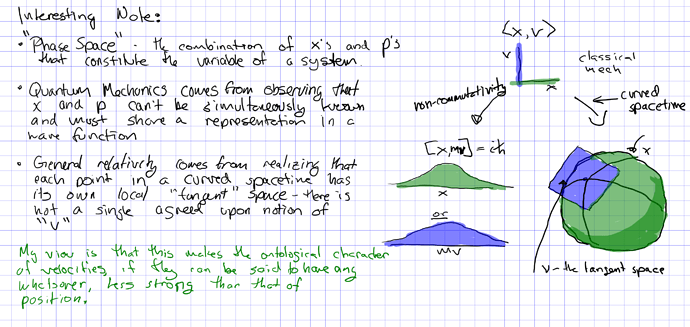 Interesting Note:
• "Phase Space" - the combination of x's and p's
that constitute the variable of a system.
• Quantum Mechanics comes from observing that
x and p can't be simultaneously known
and must share a representation in a
wave function
• General relativity comes from realizing that
each point in a curved spacetime has
its own local "tangent" space - there is
not a single agreed upon notion of
"v"
My view is that this makes the ontological character
of velocities, if they can be said to have any
whatsoever, less strong than that of
position.
[x, v]
v
x
classical
mech
non-commutativity
curved
spacetime
[x, mv] = iħ
x
or
mv
x
v - the tangent space